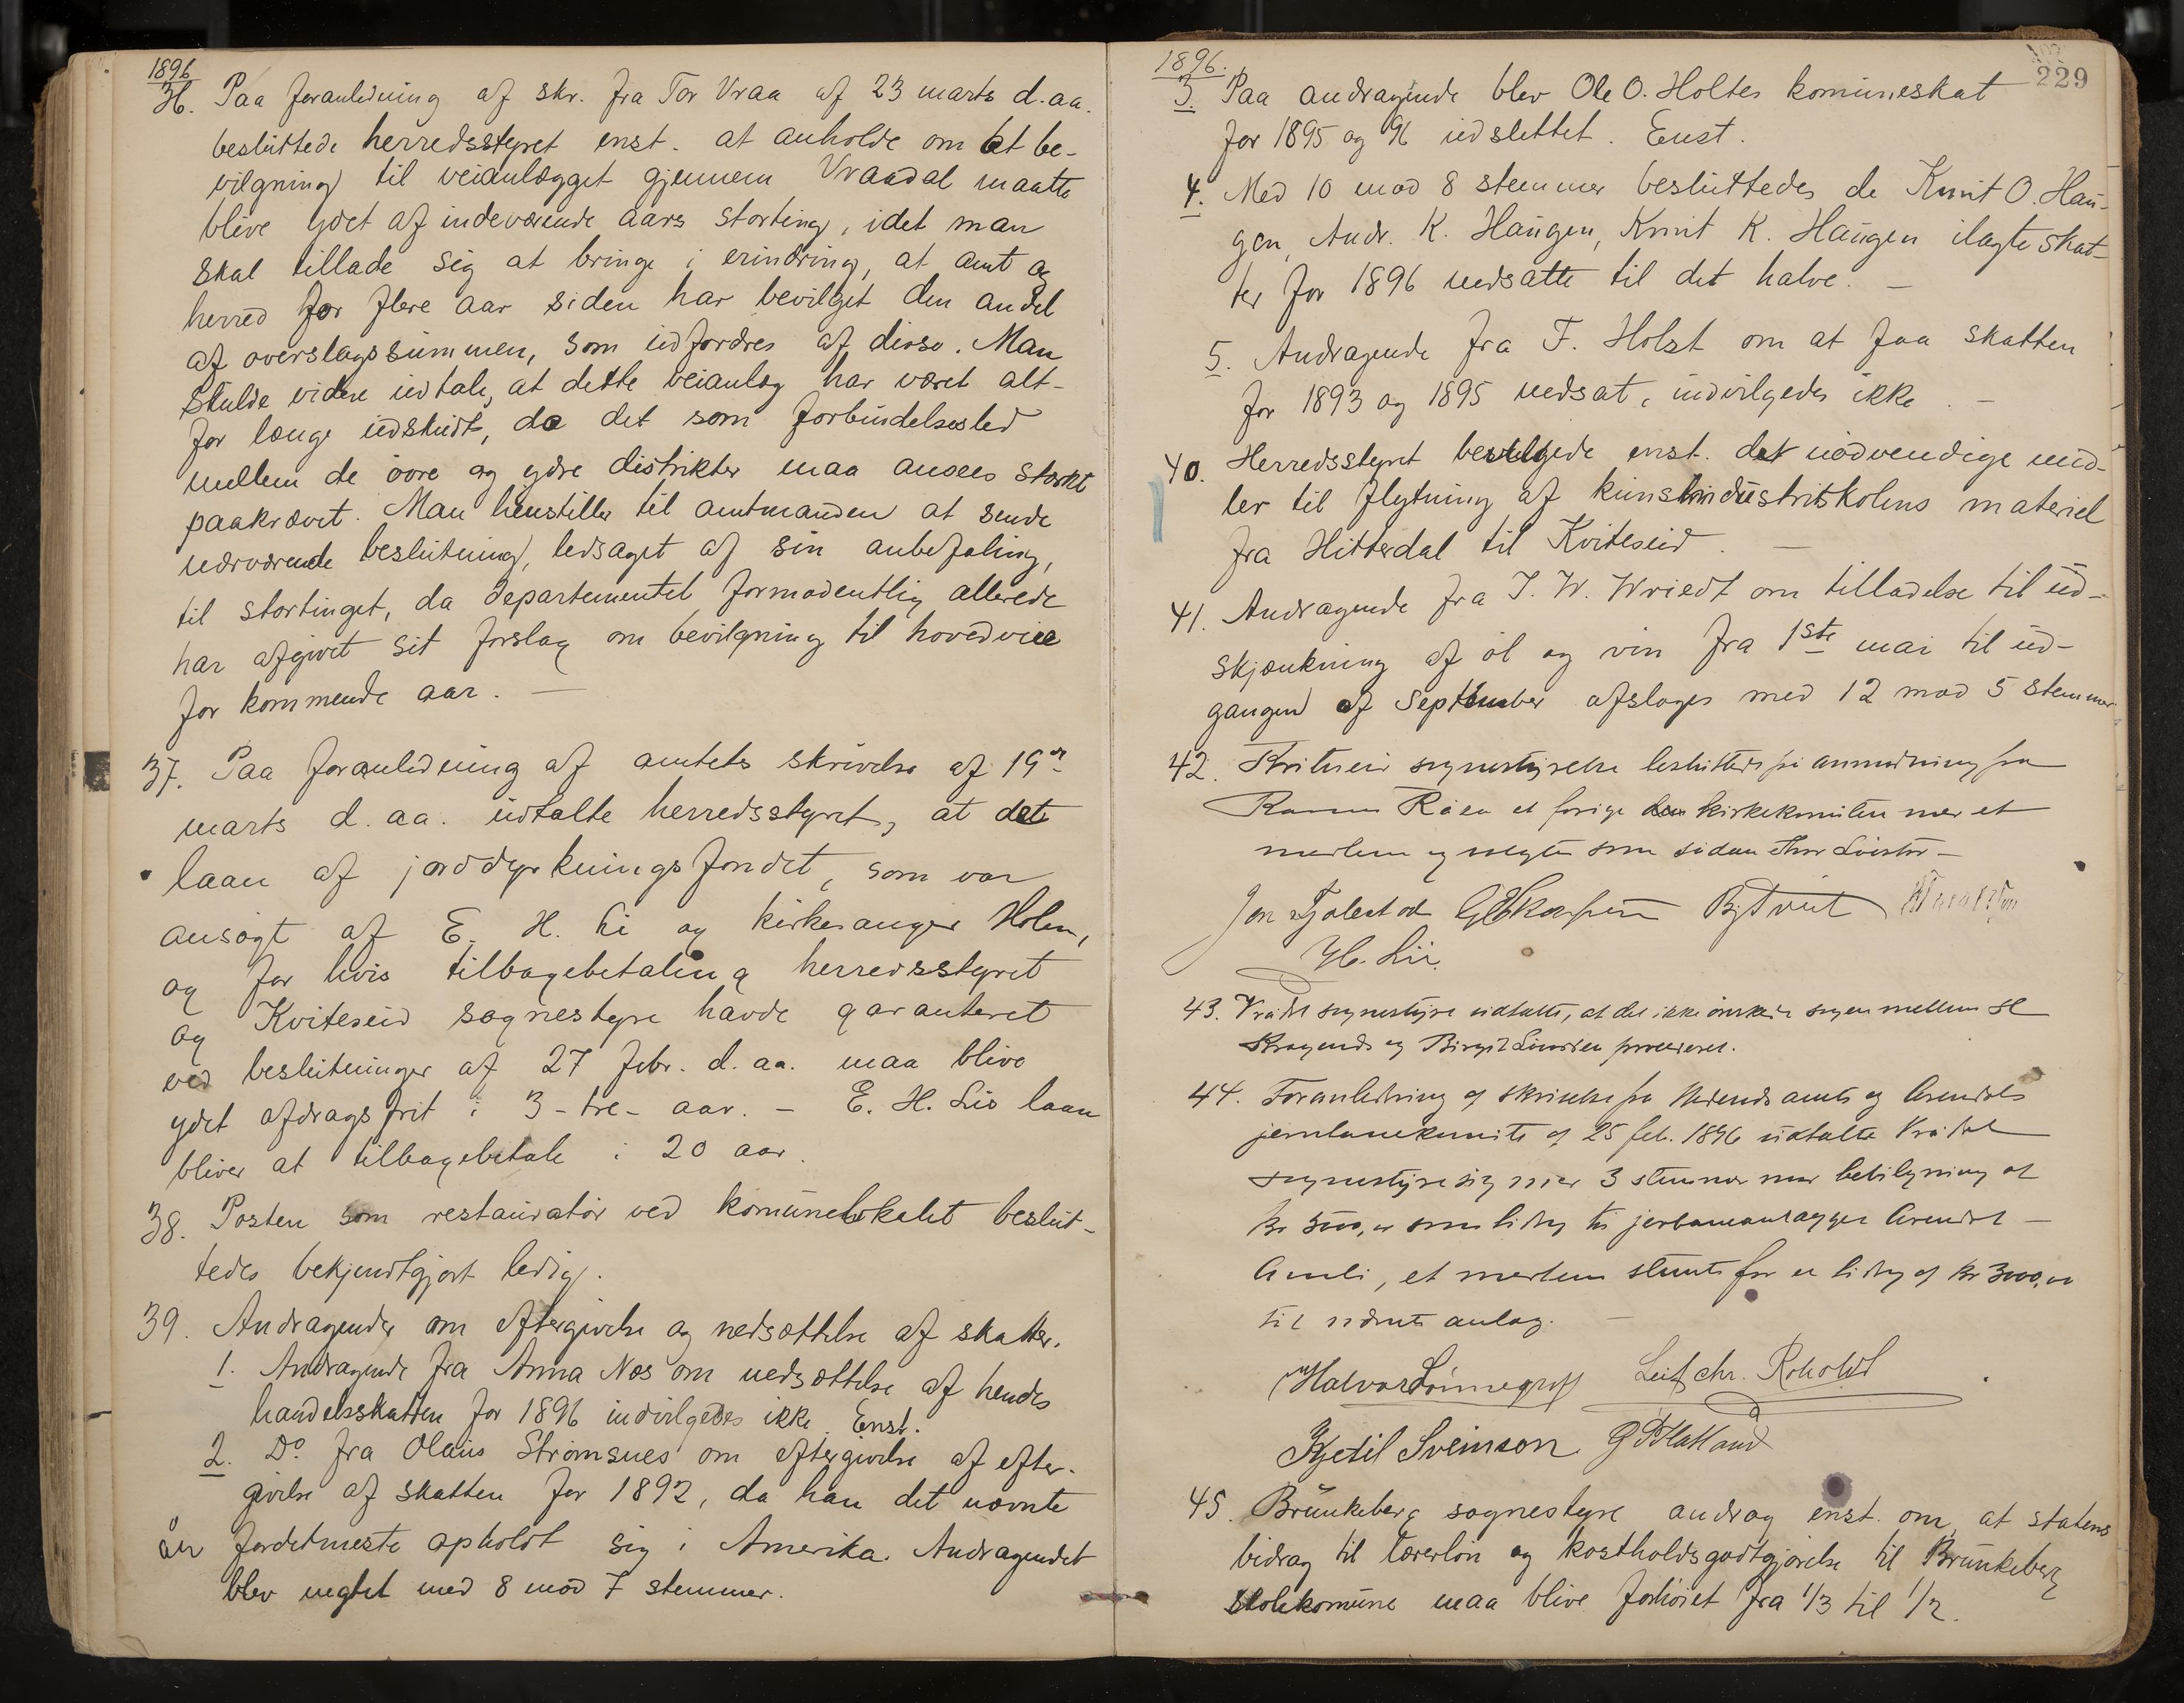 1896
36. Paa foranledning af skr. fra Tor Vraa af 23 marts d.aa.
besluttede herredsstyret enst. at anholde om at be-
vilgning til veianlægget gjennem Vraadal maatte
blive ydet af indeværende aars storting, idet man
skal tillade sig at bringe i erindring, at amt og
herred for flere aar siden har bevilget den andel
af overslagssummen, som udfordres af disse. Man
skulde videre udtale, at dette veianlæg har været alt-
for længe udskudt, da det som forbindelsesled
mellem de øvre og ydre distrikter maa ansees stærkt
paakrævet. Man henstiller til amtmanden at sende
nærværende beslutning, ledsaget af sin anbefaling,
til stortinget, da departementet formodentlig allerede
har afgivet sit forslag om bevilgning til hovedveie
for kommende aar. —
37. Paa foranledning af amtets skrivelse af 19de
marts d.aa. udtalte herredsstyret, at det
laan af jorddyrkningsfondet, som var
ansøgt af E. H. Li og kirkesanger Holm,
og for hvis tilbagebetaling herredsstyret
og Kviteseid sognestyre havde garanteret
ved beslutninger af 27 febr. d.aa. maa blive
ydet afdragsfrit i 3 - tre - aar. — E. H. Lis laan
bliver at tilbagebetale i 20 aar.
38. Posten som restauratør ved komunelokalet beslut-
tedes bekjendtgjort ledig.
39. Andragender om eftergivelse og nedsættelse af skatter.
1. Andragende fra Anna Næs om nedsættelse af hendes
handelsskatten for 1896 indvilgedes ikke. Enst.
2. Do fra Olaus Strømsnes om eftergivelse af efter-
givelse af skatten for 1892, da han det nævnte
år fordetmeste opholdt sig i Amerika. Andragendet
blev negtet med 8 mod 7 stemmer.
1896.
229
3. Paa andragende blev Ole O. Holtes komuneskat
for 1895 og 96 udslettet. Enst.
4. Med 10 mod 8 stemmer besluttedes de Knut O. Hau-
gen, Andr. K. Haugen, Knut K. Haugen ilagte skat-
ter for 1896 nedsatte til det halve. —
5. Andragende fra F. Holst om at faa skatten
for 1893 og 1895 nedsat, indvilgedes ikke. —
40. Herredsstyret bevilgede enst. det nødvendige mid-
ler til flytning af kunstindustriskolens materiel
fra Hitterdal til Kviteseid. —
41. Andragende fra J. W. Wriedt om tilladelse til ud-
skjænkning af øl og vin fra 1ste mai til ud-
gangen af September afsloges med 12 mod 5 stemmer
42. sognestyrelse besluttede på anmodning fra
at forige kirkekomiten med et
medlem og valgtes som sådan
Jon Tjolestad
H. Lii
43. Vrådal sognestyre udtalte, at det ikke ønskede sagen mellem
og Birgit procederet.
44. Foranledning af skrivelse fra Nedenæs amts og Arendals
jernbanekomite af 25 feb. 1896 udtalte Vrådal
sognestyre sig med 3 stemmer mod bevilgning af
kr som bidrag til jerbaneanlægget Arendal —
Åmli, et medlem stemte for et bidrag af kr 3000,00
til nævnte anlæg. —
Halvor Leif chr. Roholdt
Kjetil Sveinson
45. Brunkeberg sognestyre androg enst. om, at statens
bidrag til lærerløn og kostholdsgodtgjørelse til Brunkeberg
skolekomune maa blive forhøiet fra 1/3 til 1/2.